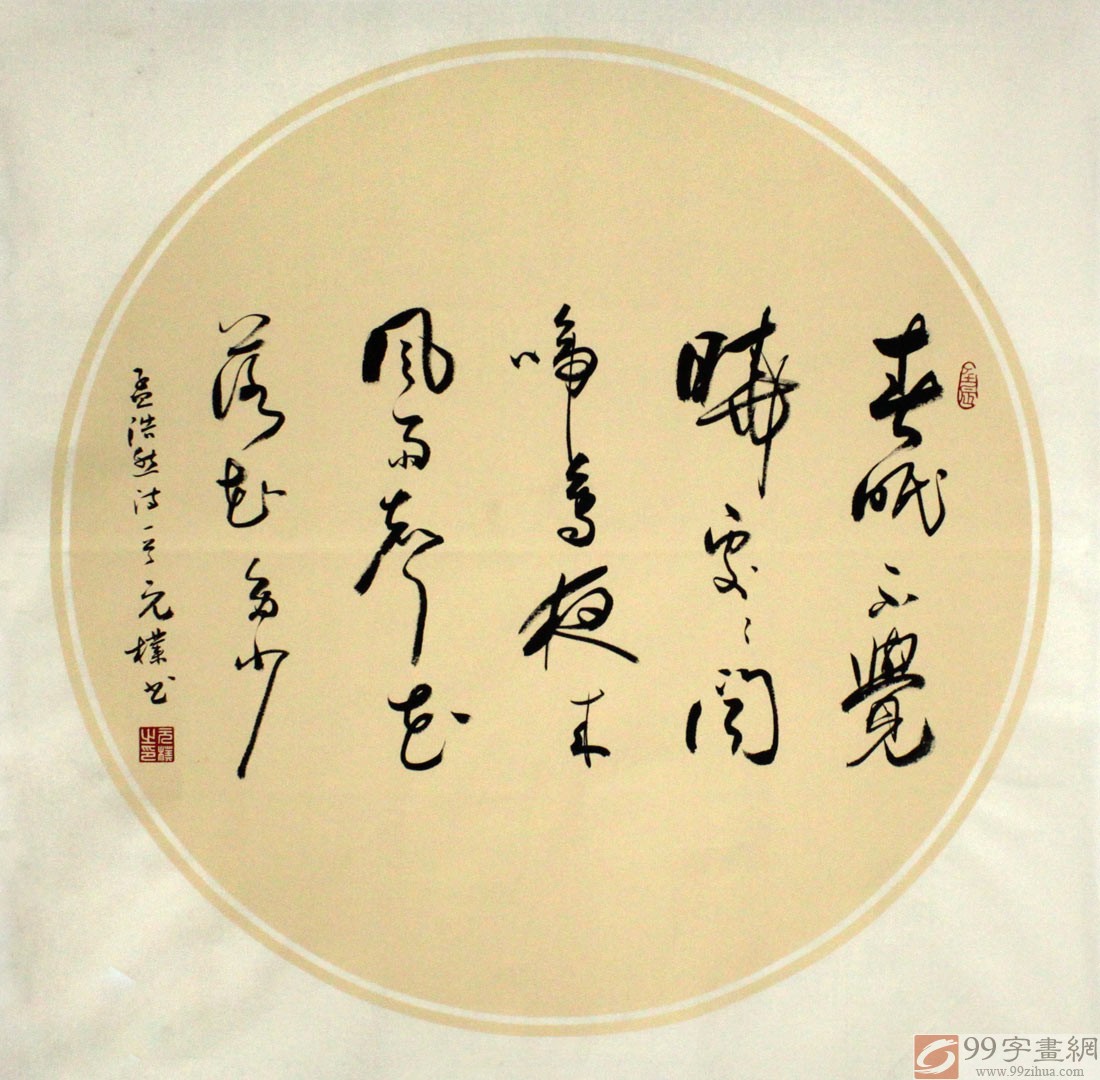 春眠不覺
曉處〻聞
啼鳥夜来
風雨聲花
落花多少
孟浩然诗一首元樸书
元樸之印
99字畫網
www.99zihua.com